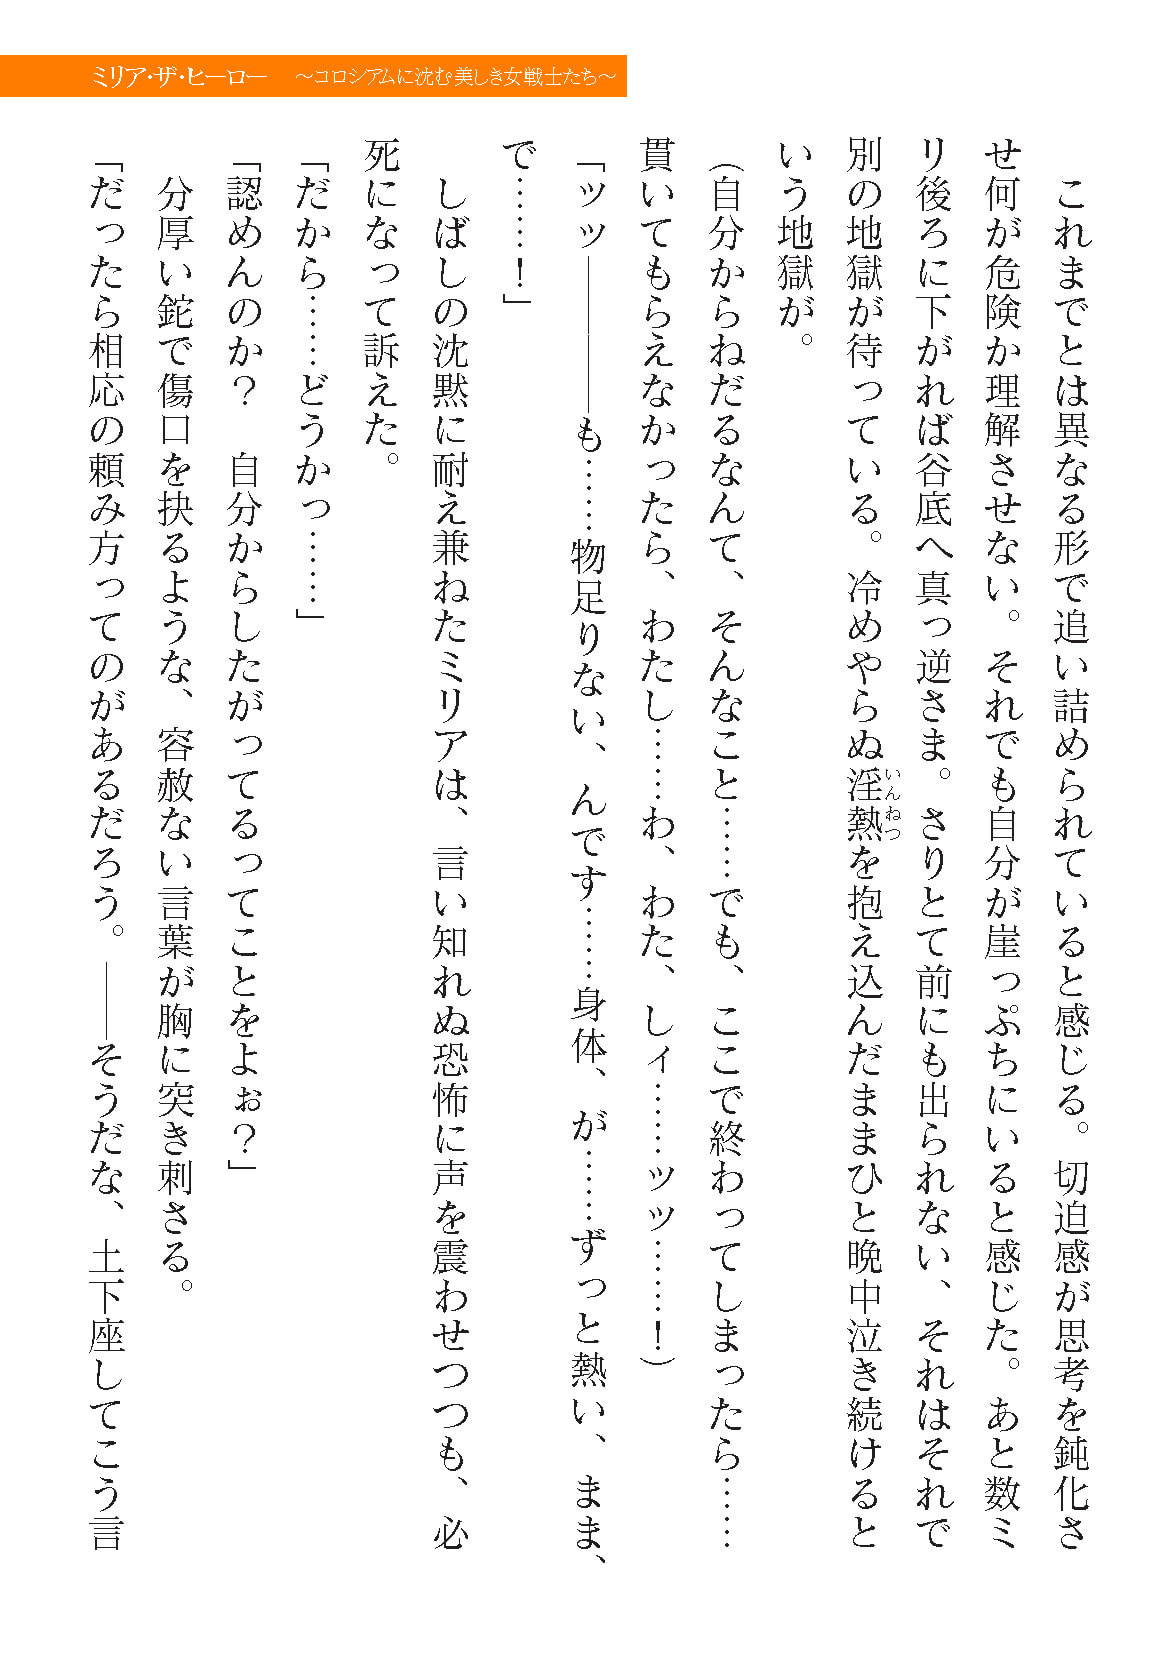 ミリア・ザ・ヒーロー　～コロシアムに沈む美しき女戦士たち～
　これまでとは異なる形で追い詰められていると感じる。切迫感が思考を鈍化さ
せ何が危険か理解させない。それでも自分が崖っぷちにいると感じた。あと数ミ
リ後ろに下がれば谷底へ真っ逆さま。さりとて前にも出られない、それはそれで
別の地獄が待っている。冷めやらぬ淫熱を抱え込んだままひと晩中泣き続けると
いんねつ
いう地獄が。
（自分からねだるなんて、そんなこと……でも、ここで終わってしまったら……
貫いてもらえなかったら、わたし……わ、わた、しィ……ッッ……！）
「ッッ――――も……物足りない、んです……身体、が……ずっと熱い、まま、
で……！」
　しばしの沈黙に耐え兼ねたミリアは、言い知れぬ恐怖に声を震わせつつも、必
死になって訴えた。
「だから……どうかっ……」
「認めんのか？　自分からしたがってるってことをよぉ？」
　分厚い鉈で傷口を抉るような、容赦ない言葉が胸に突き刺さる。
「だったら相応の頼み方ってのがあるだろう。――そうだな、土下座してこう言